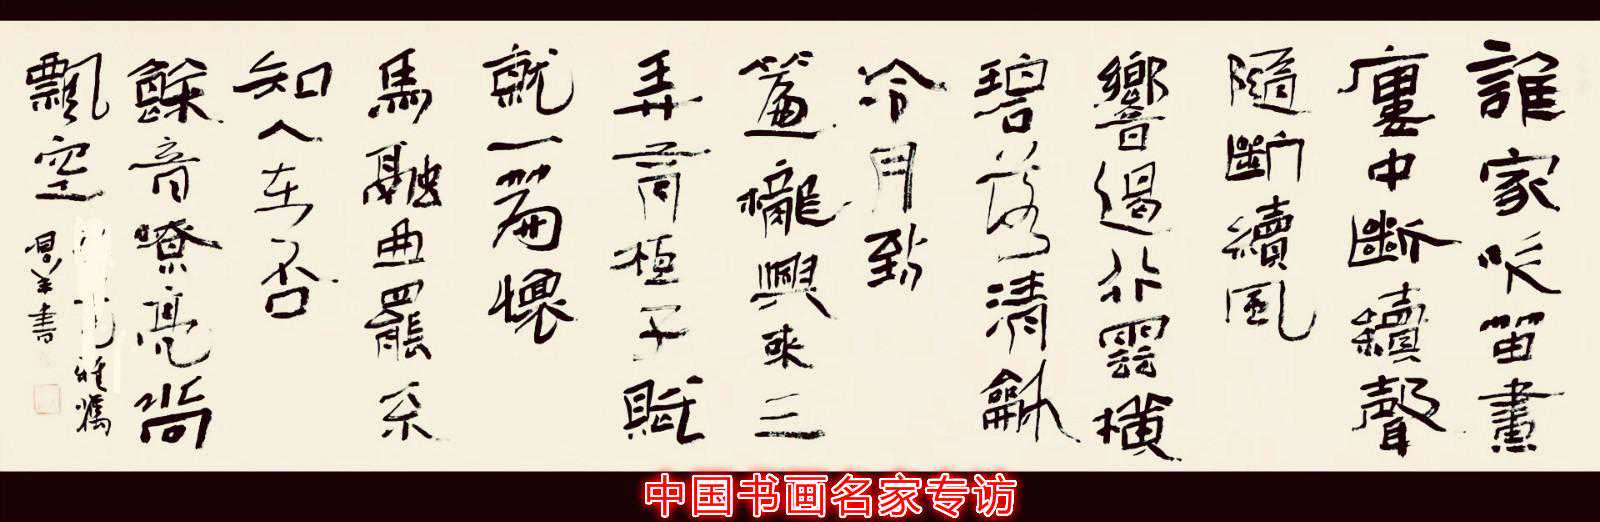 誰家吹笛畫
廔中斷續聲
隨斷續風
響遏行雲橫
碧落清龢
冷月到
簾櫳興來三
弄有桓子賦
就一篇懷
馬融曲罷不
知人在否
餘音嘹亮尚
飄空
雅嘱
書
中国书画名家专访